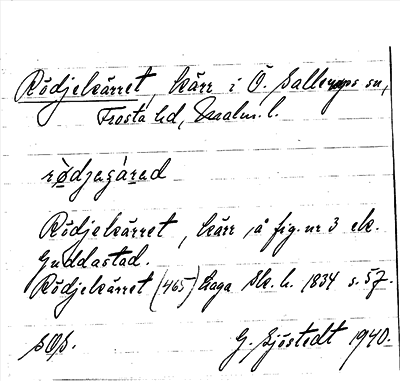 Rödjekärret, kärr i Ö. Sallerups sn,
Frosta hd, Malm. l.
rödjaʒárad
Rödjekärret, kärr å fig. nr 3 ek.
Guddastad.
Rödjekärret (465) Laga Sk. h. 1834 s. 57.
SOS.
G. Sjöstedt 1940.